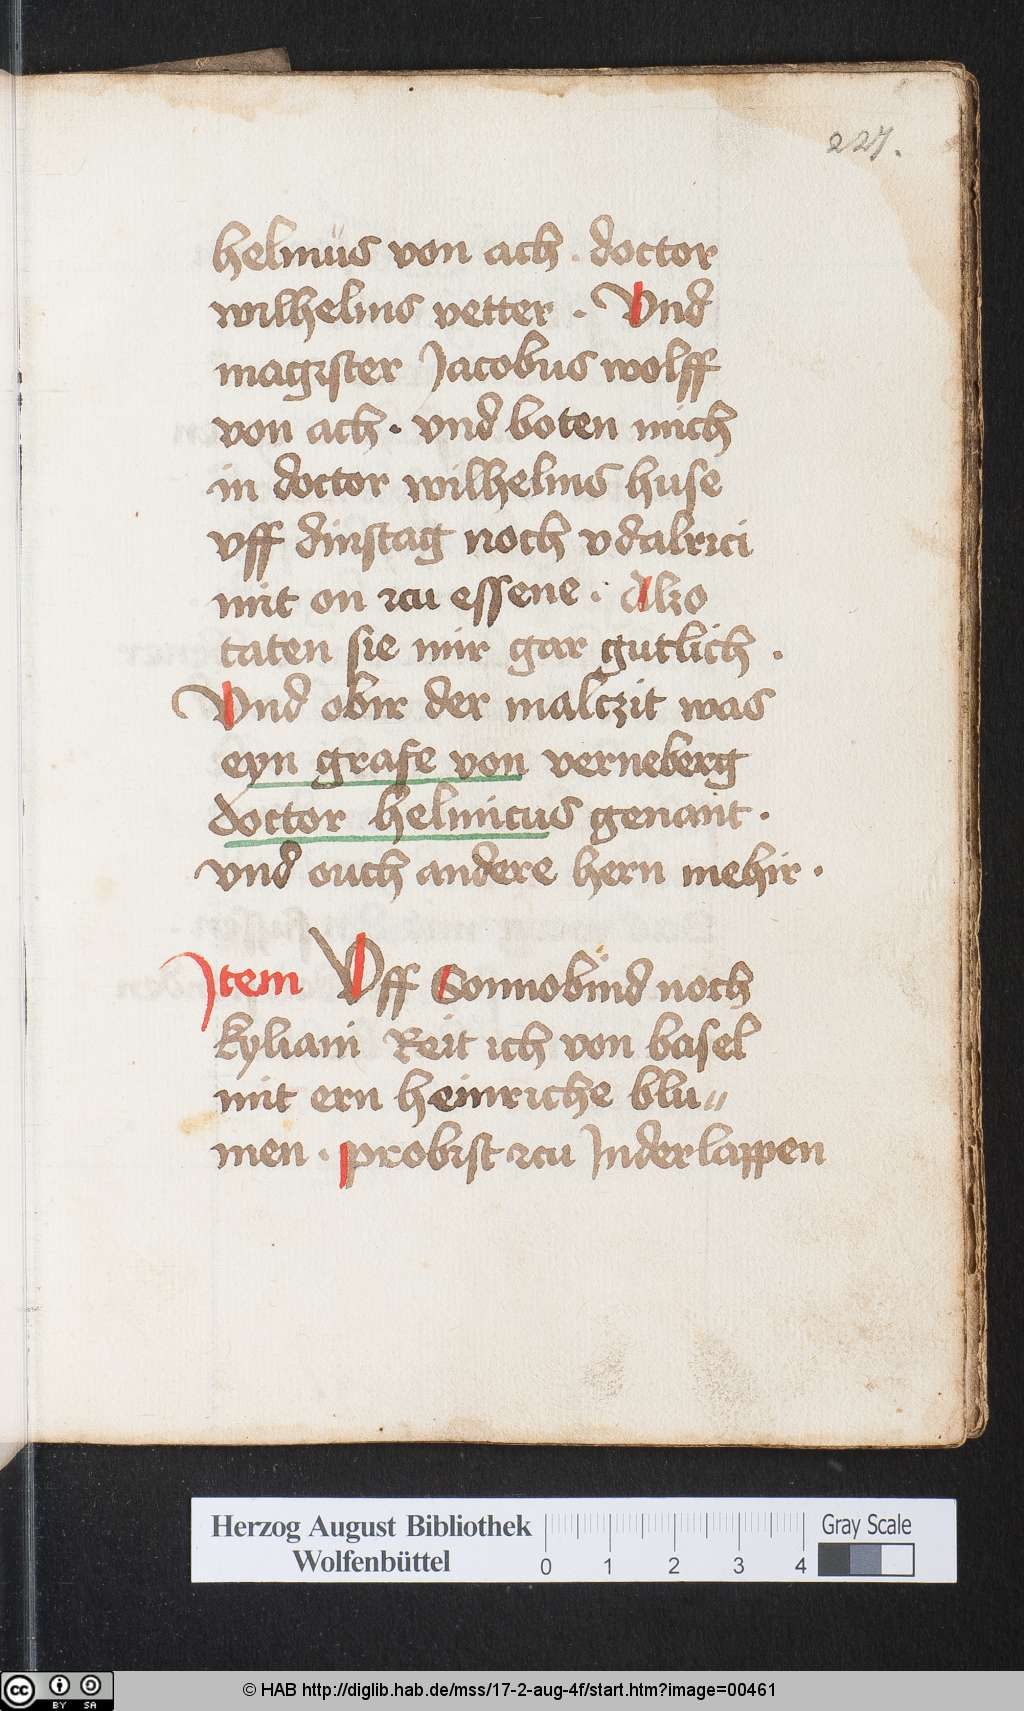 227.
helmüs von ach . doctor
wilhelms vetter . Vnd
magister Jacobus wolff
von ach . vnd boten mich
in doctor wilhelms huse
vff dinstag noch vdalrici
mit on zcu essene . Alzo
taten sie mir gar gutlich .
Vnd obir der malczit was
eyn grafe von verneberg
doctor helmicus genant .
vnd ouch andere hern mehir .
Item Vff Sonnobind noch
kyliani Reit ich von basel
mit ern heinriche blu„
men . probist zcu Inderlappen
Herzog August Bibliothek
Wolfenbüttel
0 1 2 3 4
Gray Scale
cc BY SA
© HAB http://diglib.hab.de/mss/17-2-aug-4f/start.htm?image=00461